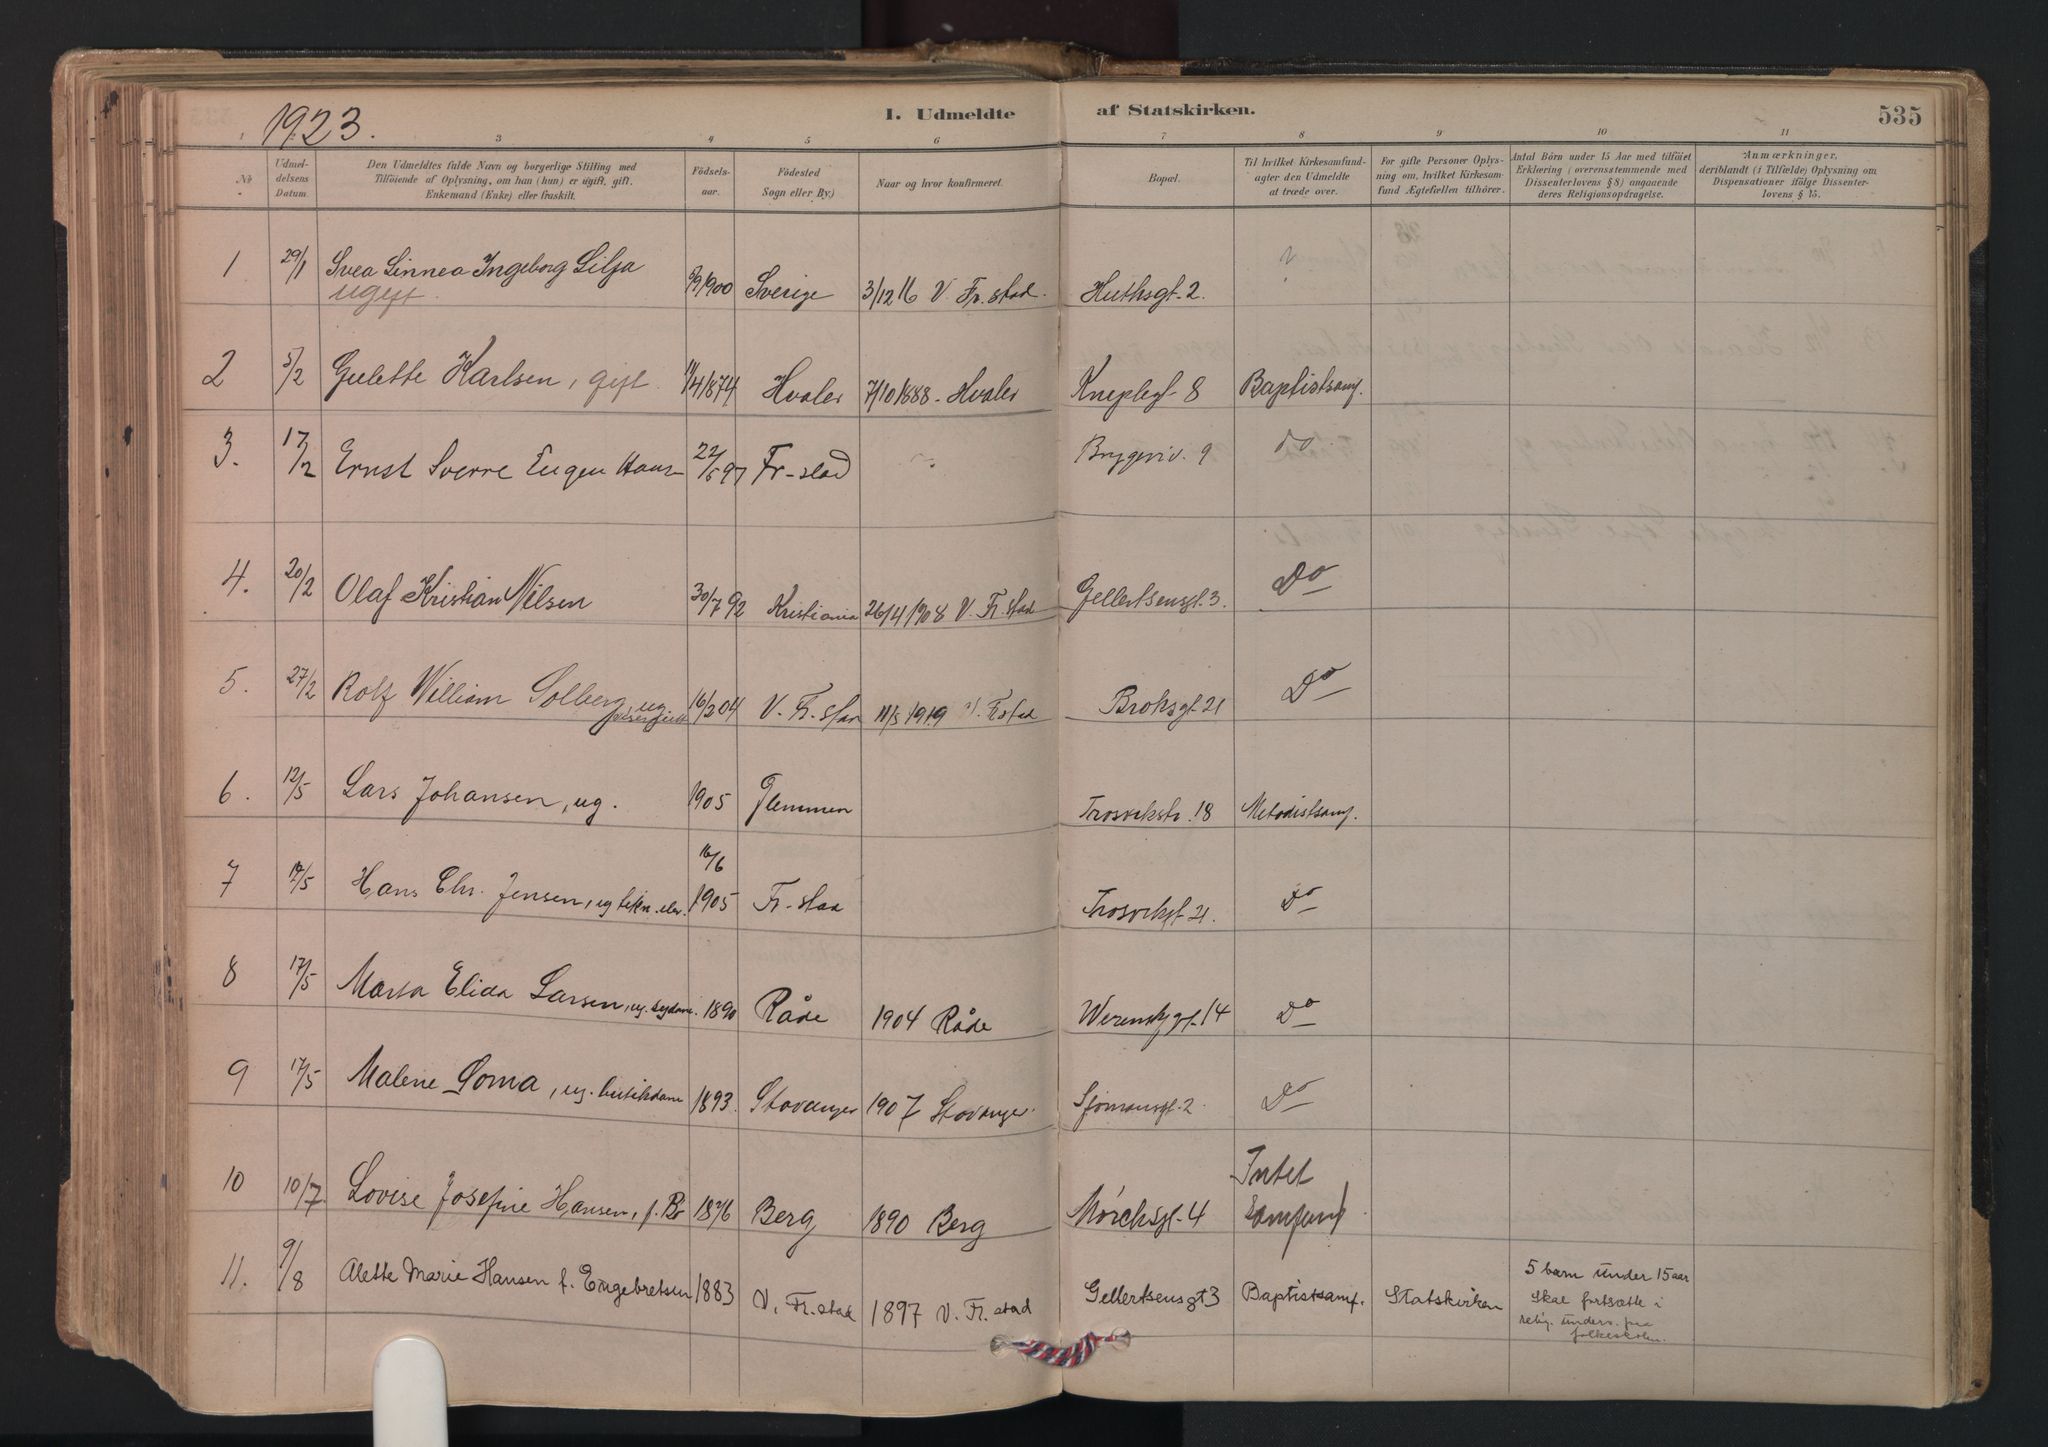 1923.
I. Udmeldte af Statskirken.
535
1 3 4 5 6 7 8 9 10 11
No
Udmeldelsens Datum.
Den Udmeldtes fulde Navn og borgerlige Stilling med
Tilföiende af Oplysning, om han (hun) er ugift, gift,
Enkemand (Enke) eller fraskilt.
Födselsaar.
Födested
Sogn eller By.)
Naar og hvor konfirmeret.
Bopæl.
Til hvilket Kirkesamfund
agter den Udmeldte
at træde over.
For gifte Personer Oplysning
om, hvilket Kirkesamfund
Ægtefællen tilhörer.
Antal Börn under 15 Aar med tilföiet
Erklæring (overensstemmende med
Dissenterlovens § 8) angaaende
deres Religionsopdragelse.
Anmærkninger,
deriblandt (i Tilfælde) Oplysning om
Dispensationer ifölge Dissenterlovens
§ 15.
1 29/1 Svea Linnea Ingeborg Lilja 1900 Sverige 3/12 16 V. Fr. stad. Huthsgt. 2. ?
ugift.
2 5/2 Gulette Karlsen, gift. 11/4 1874 Hvaler 7/10 1888. Hvaler Kneplegt. 8 Baptistsamf.
3. 17/2 Ernst Sverre Eugen Hansen 22/5 97 Fr-stad Bryggeriv. 9 do.
4. 20/2 Olaf Kristian Nilsen 30/7 92 Kristiania 26/4 1908 V. Fr. stad Gellertsensgt. 3. Do
5. 27/2 Rolf William Solberg, ug. 16/3 04 V. Fr. stad 11/5 1919 V. Frstad Broksgt. 21 Do
6. 12/5 Lars Johansen, ug. 1905 Glemmen Trosvikstr. 18 Metodistsamf.
7 17/5 Hans Chr. Jensen, ug tekn. elev. 16/6 1905 Fr. stad Trosvikgt. 21. Do
8 17/5 Marta Elida Larsen, ug. sydame. 1890 Råde 1904 Råde Werenskgt. 14 Do
9 17/5 Malene Soma, ug. butikdame 1893. Stavanger 1907 Stavanger. Sjömansgt. 2. Do
10 10/7 Lovise Josefine Hansen, f. Br 1876 Berg 1890 Berg Mørchsgt. 4 Intet Samfund
11. 9/8 Alette Marie Hansen f. Engebretsen 1883 V. Fr. stad 1897 V. Fr. stad Gellertsensgt 3 Baptistsamf. Statskirken 5 barn under 15 aar
skal fortsætte i
relig. underv. paa
folkeskolen.